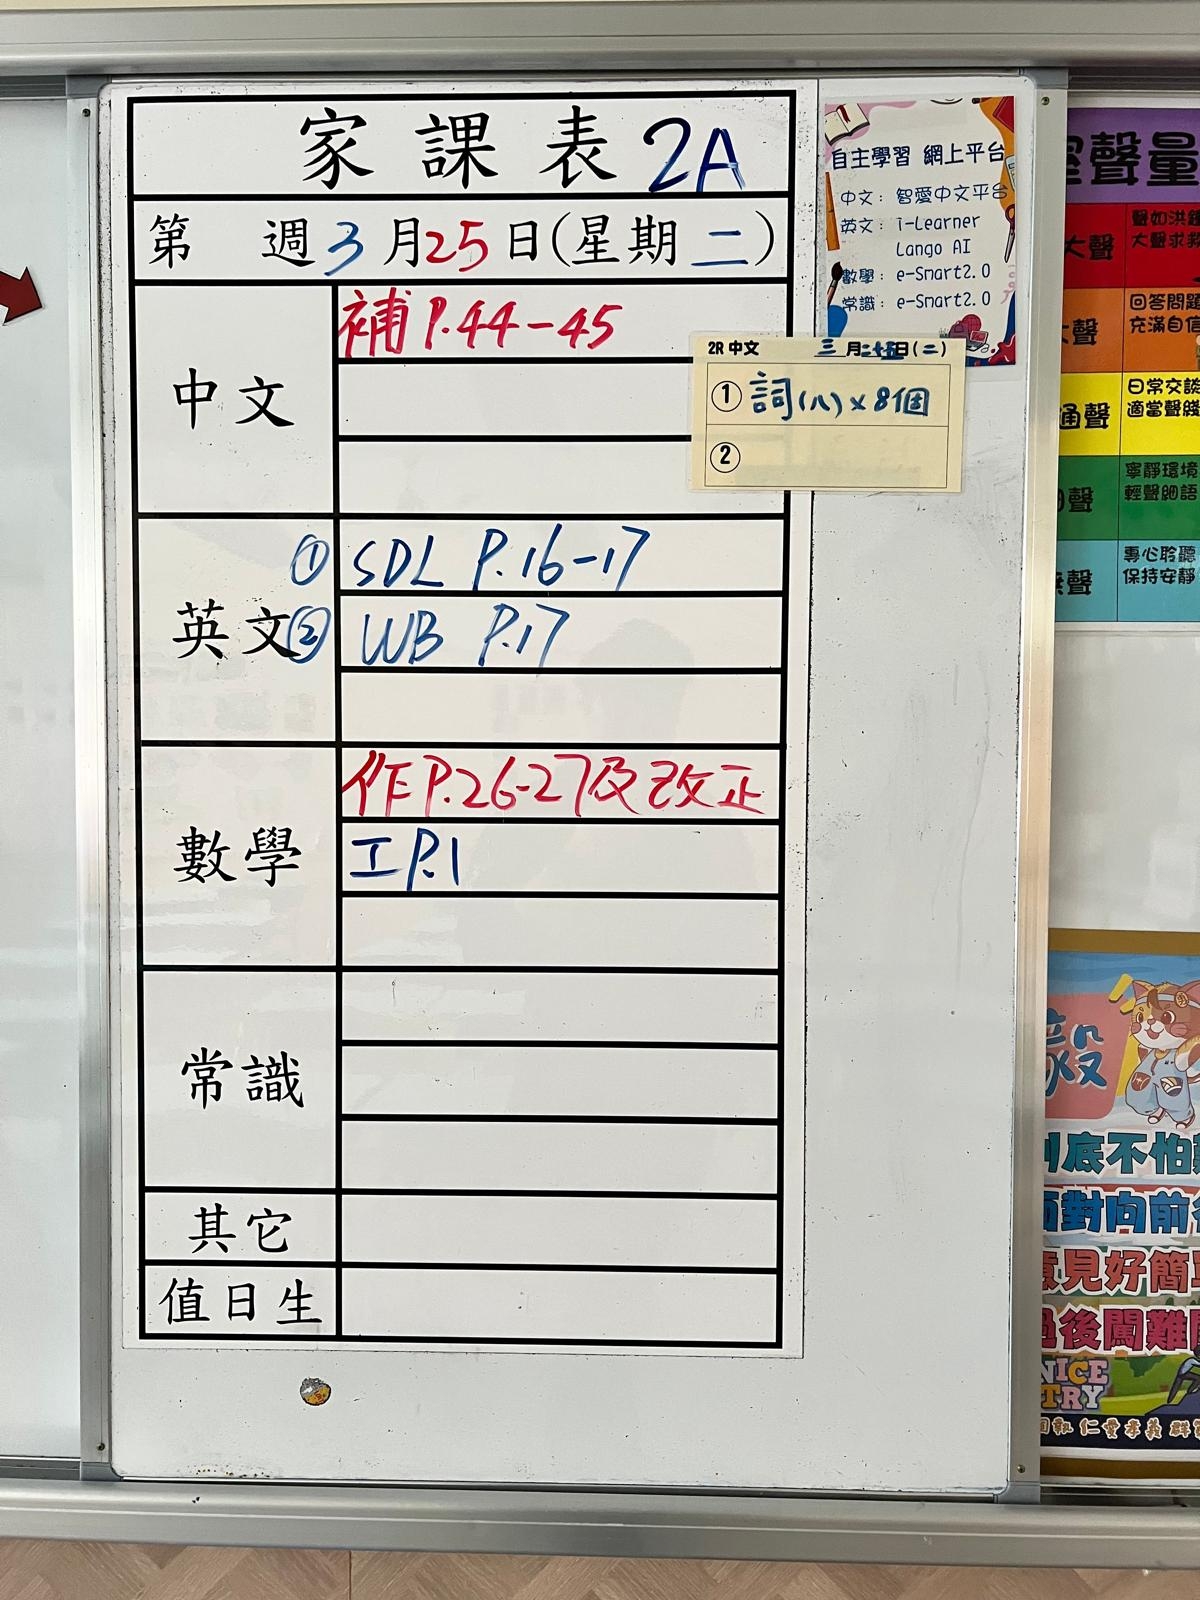 家課表 2A
第 週 3月25日(星期二)
中文
補 P.44-45
英文
① SDL P.16-17
② WB P.17
數學
作P.26-27及改正
工P.1
常識
其它
值日生
自主學習 網上平台
中文：智愛中文平台
英文：i-Learner
Lango AI
數學：e-Smart2.0
常識：e-Smart2.0
2R 中文 三月二十五日(二)
① 詞(八)x8個
②
聲量
大聲
聲如洪鐘
大聲求救
聲
回答問題
充滿自信
通聲
日常交談
適當聲綫
聲
寧靜環境
輕聲細語
無聲
專心聆聽
保持安靜
毅
到底不怕難
面對向前
意見好簡單
過後闖難關
NICE
TRY
仁愛孝義